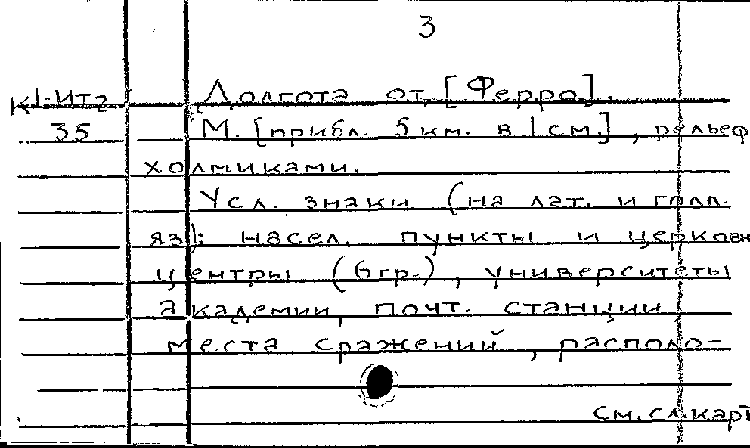 3
К1-Ит2 Долгота от [Ферро].
35 М. [прибл. 5 км. в 1 см.], рельеф
холмиками.
Усл. знаки (на лат. и голл.
яз): насел. пункты и церковн
центры (6 гр.), университеты
академии, почт. станции,
места сражений, располо-
см. сл. карт